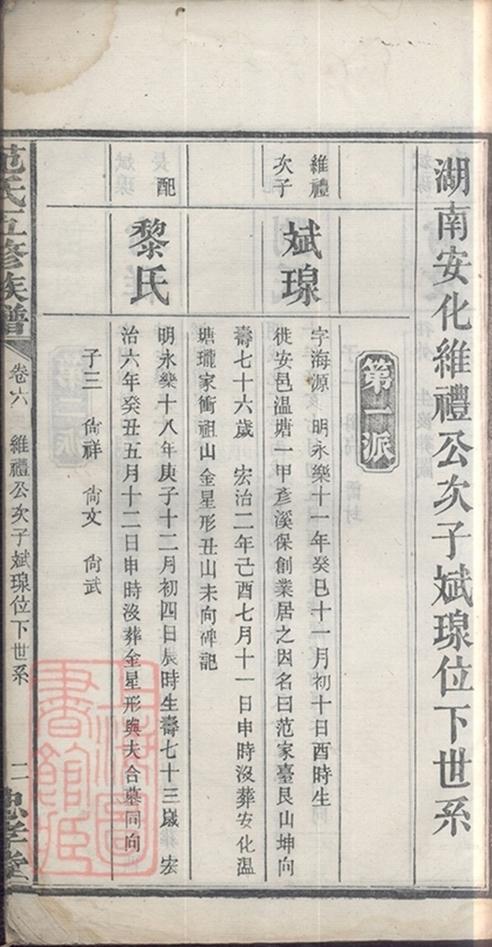 湖南安化維禮公次子斌瑔位下世系
第一派
維禮
次子
斌瑔
字海源 明永樂十一年癸巳十一月初十日酉時生
徙安邑温塘一甲彥溪保創業居之因名曰范家臺艮山坤向
壽七十六歲 宏治二年己酉七月十一日申時沒葬安化溫
塘瓏家衝祖山金星形丑山未向碑記
配
黎氏
明永樂十八年庚子十二月初四日辰時生壽七十三歲 宏
治六年癸丑五月十二日申時沒葬金星形與夫合墓同向
子三 尙祥 尙文 尙武
范氏五修族譜
卷六 維禮公次子斌瑔位下世系
二
忠孝堂